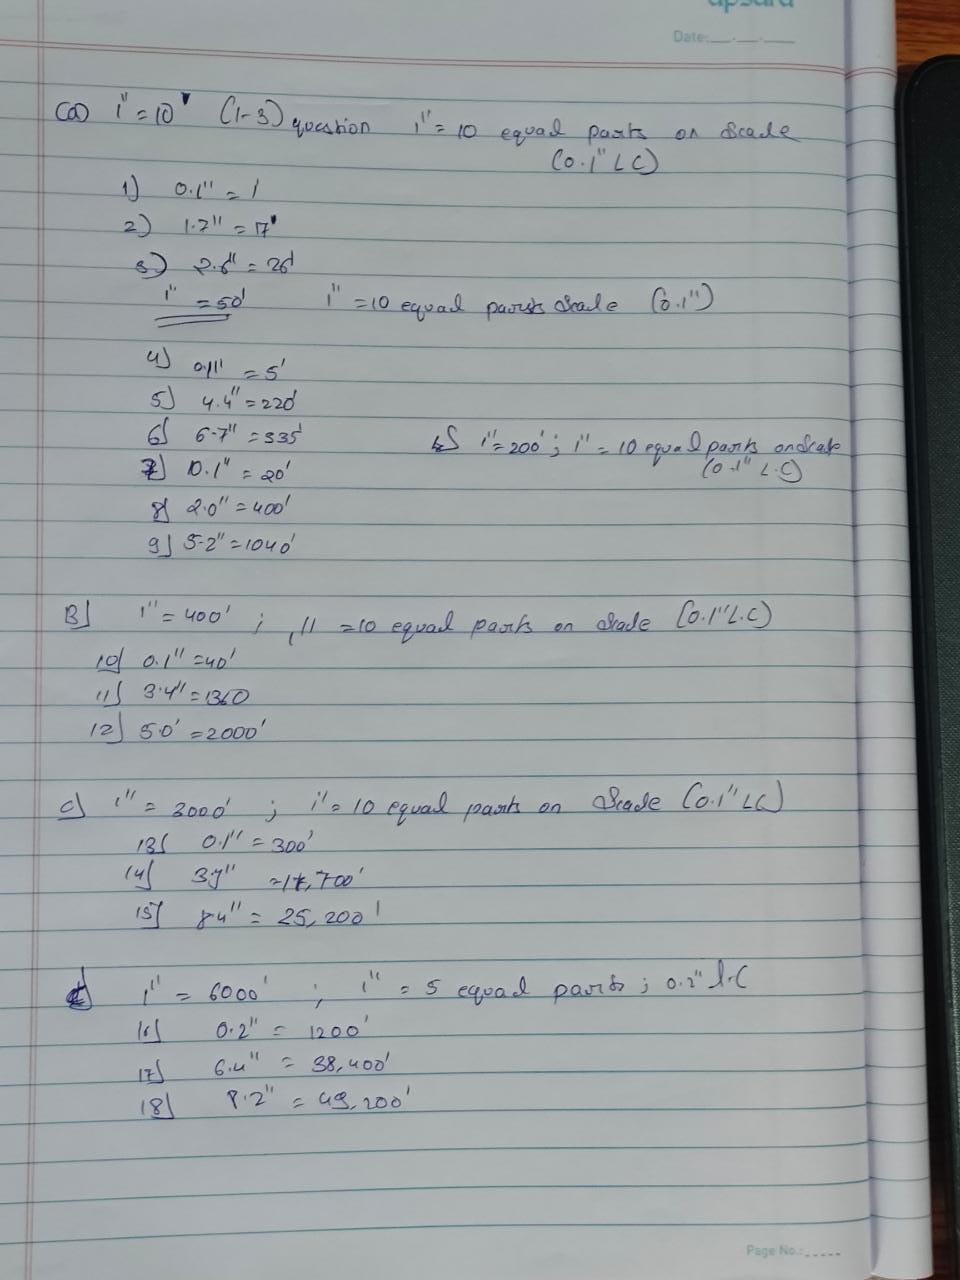 apsara
Date:
(a) 1" = 10' (1-3) question 1" = 10 equal parts on Scale
(0.1" LC)
1) 0.1" = 1'
2) 1.7" = 17'
3) 2.6" = 26'
1" = 50' 1" = 10 equal parts Scale (0.1")
4) 0.1" = 5'
5) 4.4" = 220'
6) 6.7" = 335'
b) 1" = 200' ; 1" = 10 equal parts on Scale
(0.1" L.C)
7) 0.1" = 20'
8) 2.0" = 400'
9) 5.2" = 1040'
B) 1" = 400' ; 1" = 10 equal parts on Scale (0.1" L.C)
10) 0.1" = 40'
11) 3.4" = 1360
12) 5.0' = 2000'
c) 1" = 3000' ; 1" = 10 equal parts on Scale (0.1" LC)
13) 0.1" = 300'
14) = 17,700'
15) 84" = 25,200'
1" = 6000' ; 1" = 5 equal parts ; 0.2" L.C
16) 0.2" = 1200'
17) 6.4" = 38,400'
18) 8.2" = 49,200'
Page No.: